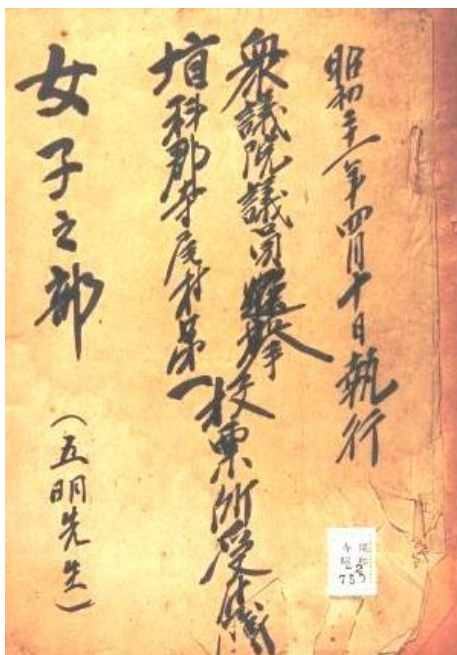 昭和二十一年四月十日執行
衆議院議員選挙
埴科郡寺尾村第一投票所受付
女子之部
（五明先生）
75